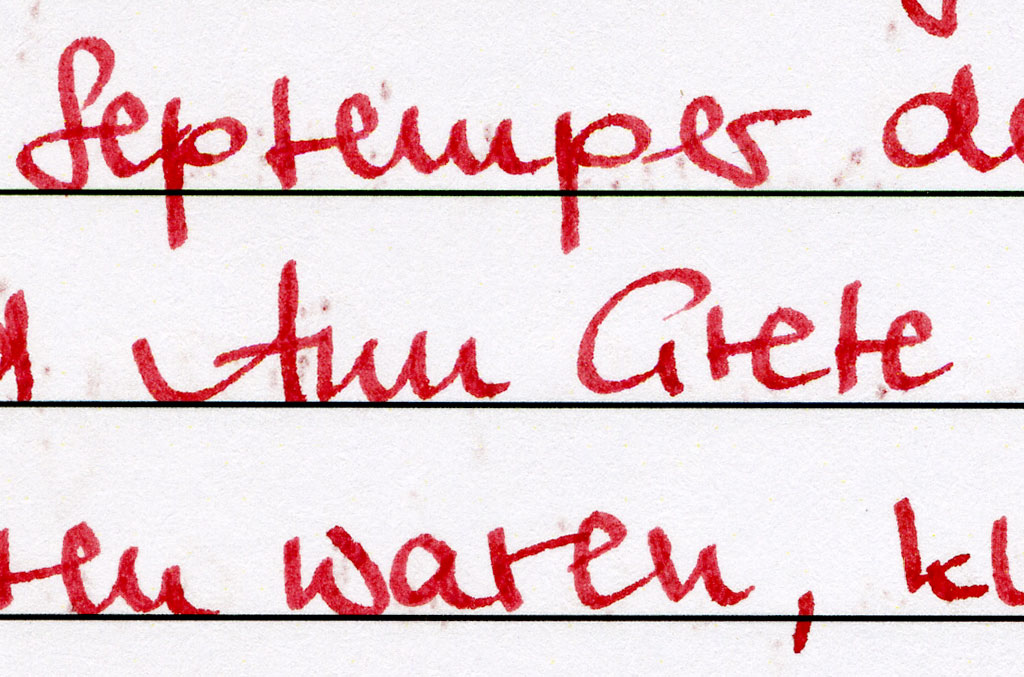 Septemper de
Ann Grete
waren, kl